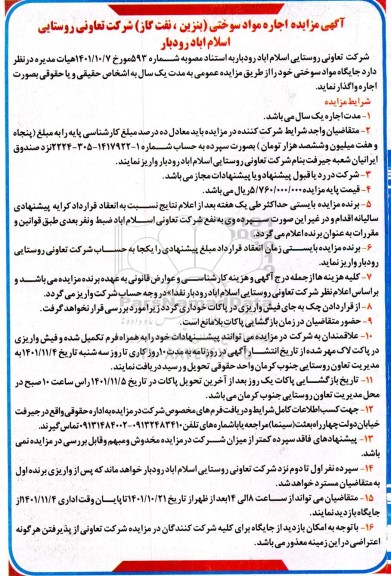 آگهی مزایده اجاره مواد سوختی (بنزین ، نفت گاز) شرکت تعاونی روستایی
اسلام اباد رودبار
شرکت تعاونی روستایی اسلام اباد رودبار به استناد مصوبه شماره ۵۹۳ مورخ ۱۴۰۱/۱۰/۷ هیات مدیره در نظر
دارد جایگاه مواد سوختی خود را از طریق مزایده عمومی به مدت یک سال به اشخاص حقیقی و یا حقوقی بصورت
اجاره واگذار نماید.
شرایط مزایده
۱- مدت اجاره یک سال می باشد.
۲- متقاضیان واجد شرایط شرکت کننده در مزایده باید معادل ده درصد مبلغ کارشناسی پایه را به مبلغ (پنجاه
و هفت میلیون و ششصد هزار تومان) بصورت سپرده به حساب شماره ۱-۱۴۱۷۹۲۲-۳۰۵-۲۲۲۴ نزد صندوق
ایرانیان شعبه جیرفت بنام شرکت تعاونی روستایی اسلام اباد رودبار واریز نمایند.
۳- شرکت در رد یا قبول پیشنهاد و یا پیشنهادات مجاز می باشد.
۴- قیمت پایه مزایده ۵/۷۶۰/۰۰۰/۰۰۰ ریال می باشد.
۵- برنده مزایده بایستی حداکثر طی یک هفته بعد از اعلام نتایج نسبت به انعقاد قرارداد کرایه پیشنهادی
سالیانه اقدام و در غیر این صورت سپرده وی به نفع شرکت تعاونی اسلام اباد ضبط و نفر بعدی طبق قوانین و
مقررات به عنوان برنده اعلام می گردد.
۶- برنده مزایده بایستی زمان انعقاد قرارداد مبلغ پیشنهادی را یکجا به حساب شرکت تعاونی روستایی
رودبار واریز نماید.
۷- کلیه هزینه ها از جمله درج آگهی و هزینه کارشناسی و عوارض قانونی به عهده برنده مزایده می باشد و
بر اساس اعلام نظر شرکت تعاونی روستایی اسلام اباد رودبار نقدا" در وجه حساب شرکت واریز می گردد.
۸- از قرار دادن چک به جای فیش واریزی در پاکات خودداری گردد زیرا مورد بررسی قرار نخواهد گرفت.
۹- حضور متقاضیان در زمان بازگشایی پاکات بلامانع است.
۱۰- علاقمندان به شرکت در مزایده می توانند پیشنهادات خود را به همراه فرم تکمیل شده و فیش واریزی
در پاکت لاک مهر شده از تاریخ انتشار آگهی در روزنامه به مدت ۱۰ روز کاری تا روز سه شنبه تاریخ ۱۴۰۱/۱۱/۴ به
مدیریت تعاون روستایی جنوب کرمان واحد حقوقی تحویل و رسید دریافت نمایند.
۱۱- تاریخ بازگشایی پاکات یک روز بعد از آخرین تحویل پاکات در تاریخ ۱۴۰۱/۱۱/۵ راس ساعت ۱۰ صبح در
محل مدیریت تعاون روستایی جنوب کرمان می باشد.
۱۲- جهت کسب اطلاعات کامل شرایط و دریافت فرم های مخصوص شرکت در مزایده به اداره حقوقی واقع در جیرفت
خیابان دولت چهارراه بعثت (سینما) مراجعه یا با شماره های تلفن ۰۹۱۳۲۴۸۳۴۱۰-۰۹۱۳۱۴۸۴۰۰۲ تماس گیرند.
۱۳- پیشنهادهای فاقد سپرده کمتر از میزان شرکت در مزایده مخدوش و مبهم و قابل بررسی در مزایده نمی
باشد.
۱۴- سپرده نفر اول تا دوم نزد شرکت تعاونی روستایی اسلام اباد رودبار خواهد ماند که پس از واریزی برنده اول
به متقاضیان مسترد خواهد شد.
۱۵- متقاضیان می توانند از ساعت ۸ الی ۱۴ بعد از ظهر از تاریخ ۱۴۰۱/۱۰/۲۱ تا پایان وقت اداری ۱۴۰۱/۱۱/۴ از
جایگاه بازدید نمایند.
۱۶- با توجه به امکان بازدید از جایگاه برای کلیه شرکت کنندگان در مزایده شرکت تعاونی از پذیرفتن هر گونه
اعتراضی در این زمینه معذور می باشد.